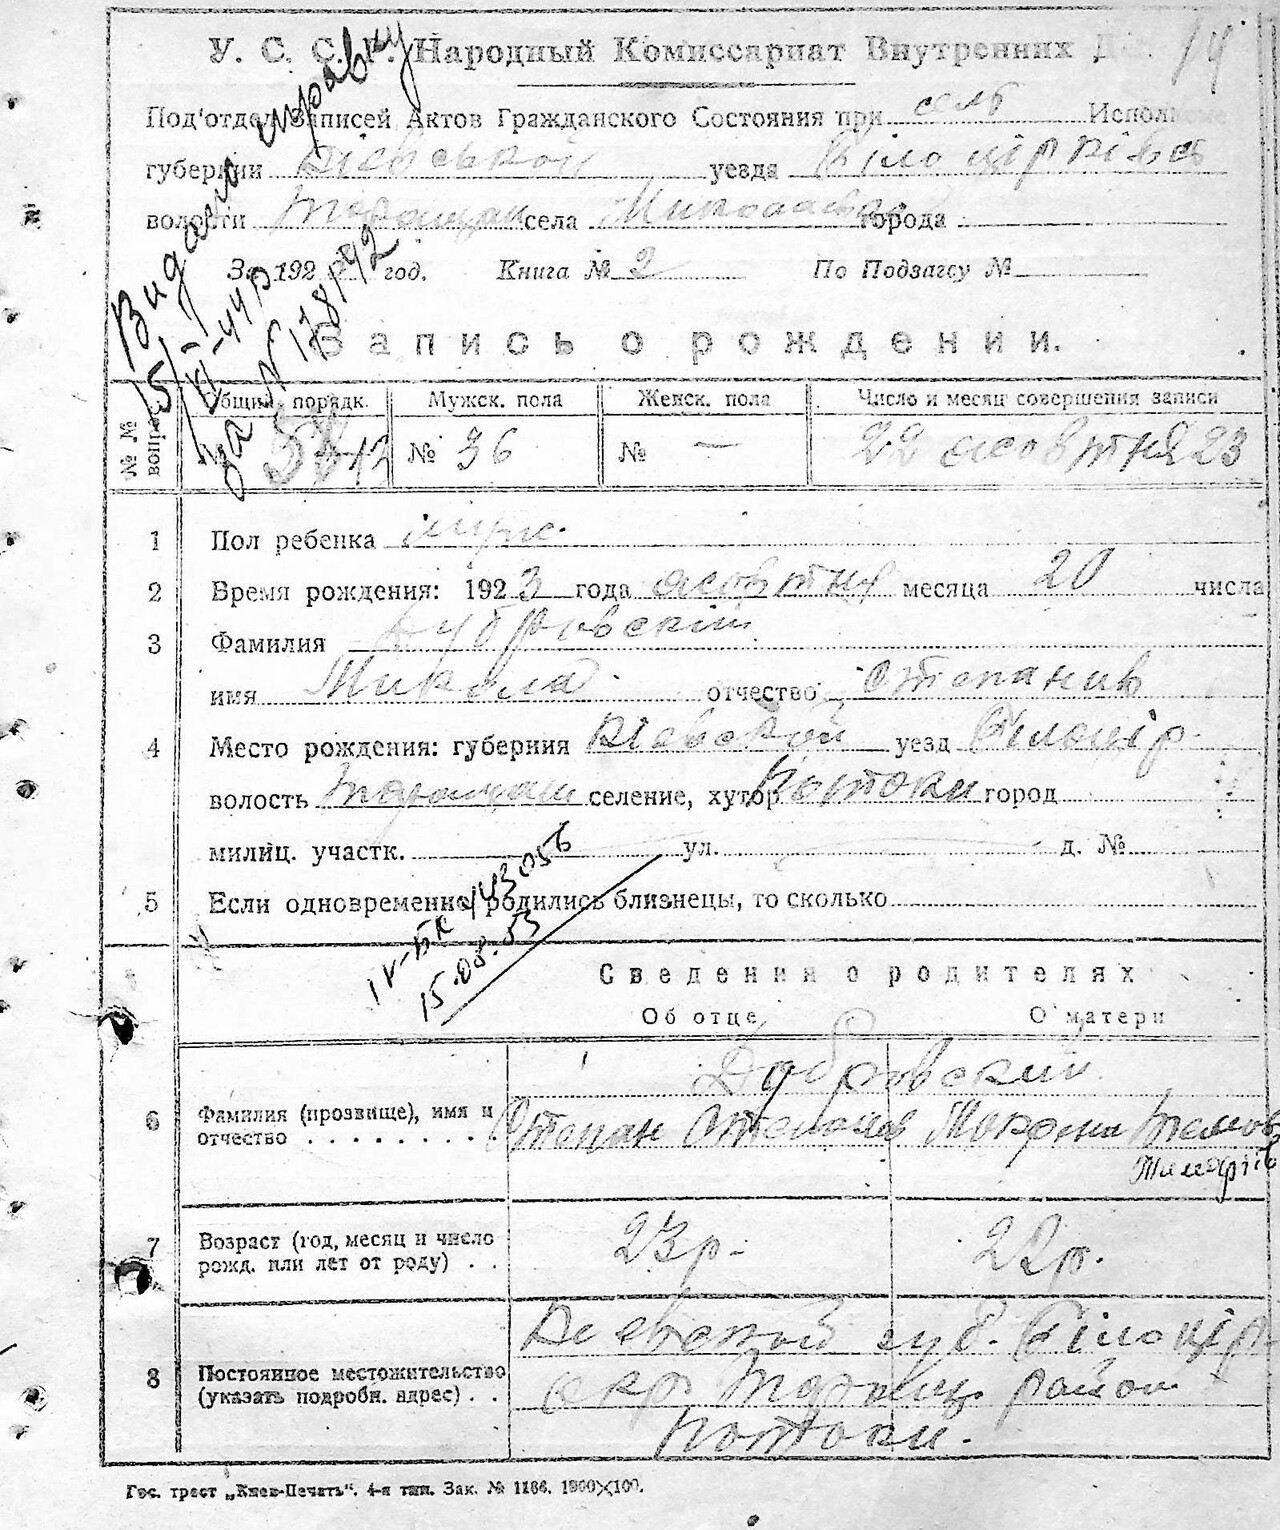 У. С. С. Р. Народный Комиссариат Внутренних Д 14
Под'отдел Записей Актов Гражданского Состояния при сельб Исполкоме
губернии Київської уезда Білоцірківсь
волости Таращан села города
За 1923 год. Книга № 2 По Подзагсу №
Запись о рождении.
Видали справку
5/VI-44р
за № 178/42
№№ вопрос
Общий порядк. Мужск. пола Женск. пола Число и месяц совершения записи
№ 36 № — 22 жовтня 23
1 Пол ребенка муж.
2 Время рождения: 1923 года жовтня месяца 20 числа
3 Фамилия Дубровскій
имя Микола отчество Степанив
4 Место рождения: губерния Кіевской уезд Білоцір.
волость Таращан селение, хутор Потоки город
милиц. участк. ул. д. №
5 Если одновременно родились близнецы, то сколько
IV-БК 443056
15.08.53
Сведения о родителях
Об отце О матери
Дубровский
6 Фамилия (прозвище), имя и отчество Степан Степанов Мокрина
7 Возраст (год, месяц и число рожд. или лет от роду) 23р. 22р.
8 Постоянное местожительство (указать подробн. адрес) Кіевской губ. Білоцір.
окр. Таращ. район
Потоки.
Гос. трест „Киев-Печать“. 4-я тип. Зак. № 1166. 1900×100.